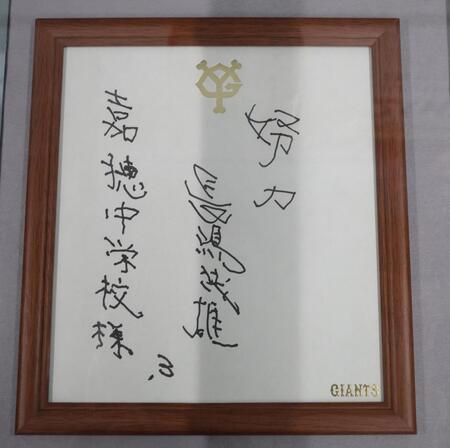 努力
長嶋茂雄
3
嘉穂中学校様
GIANTS